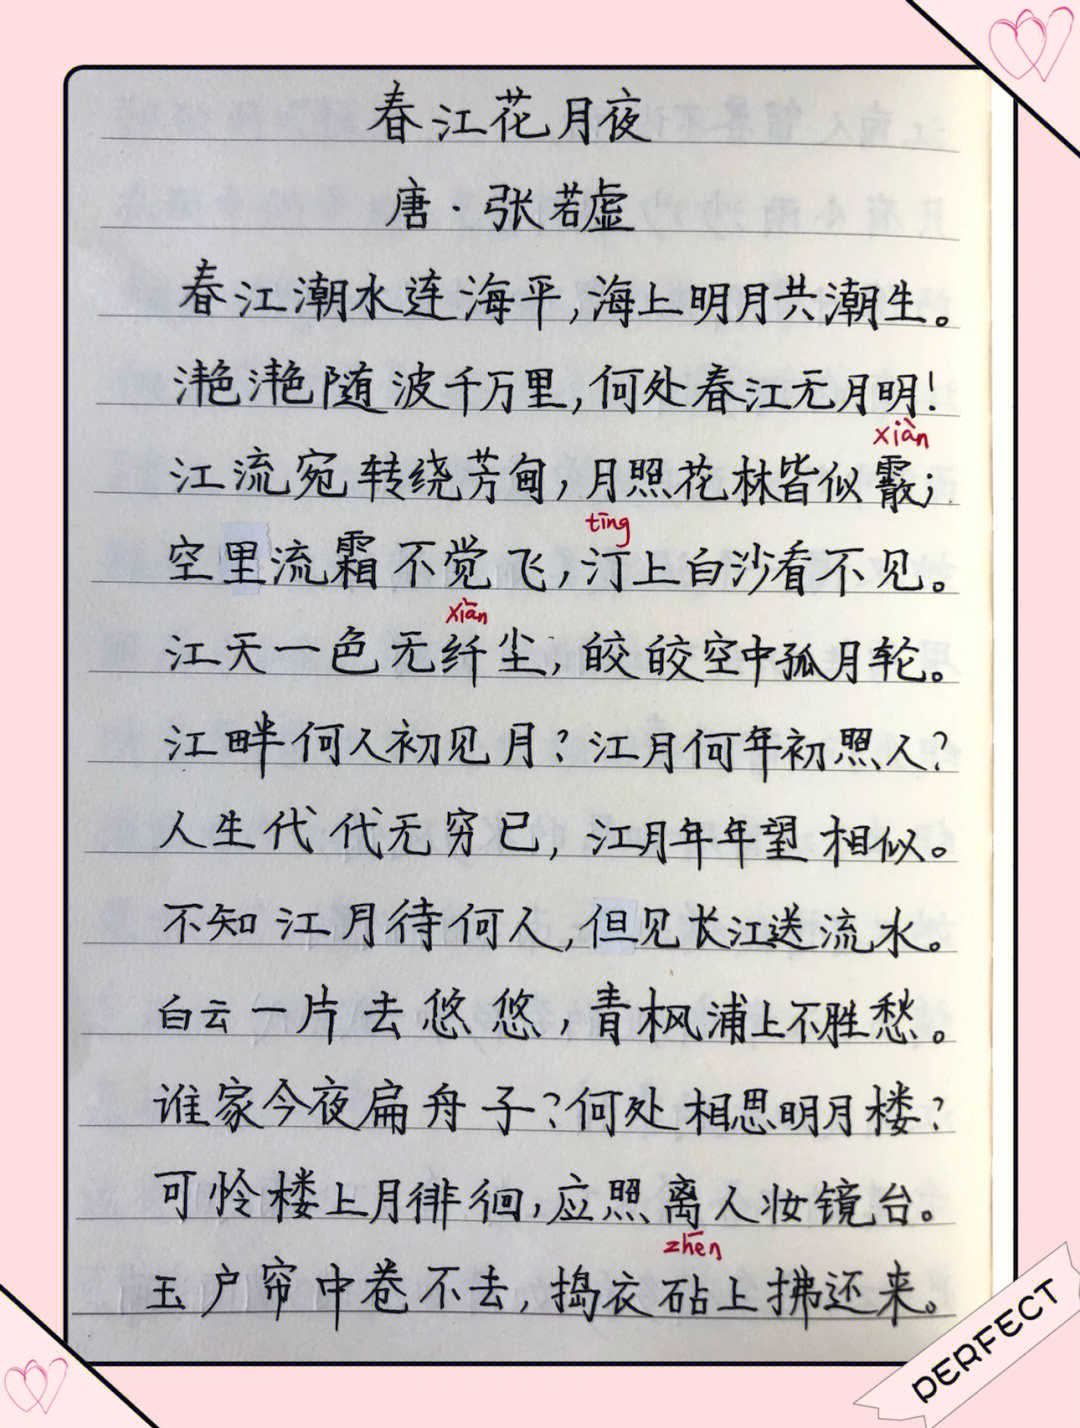 春江花月夜
唐·张若虚
春江潮水连海平,海上明月共潮生。
滟滟随波千万里,何处春江无月明!
xiàn
江流宛转绕芳甸,月照花林皆似霰;
tīng
空里流霜不觉飞,汀上白沙看不见。
xiān
江天一色无纤尘,皎皎空中孤月轮。
江畔何人初见月?江月何年初照人?
人生代代无穷已,江月年年望相似。
不知江月待何人,但见长江送流水。
白云一片去悠悠,青枫浦上不胜愁。
谁家今夜扁舟子?何处相思明月楼?
可怜楼上月徘徊,应照离人妆镜台。
zhēn
玉户帘中卷不去,捣衣砧上拂还来。
PERFECT